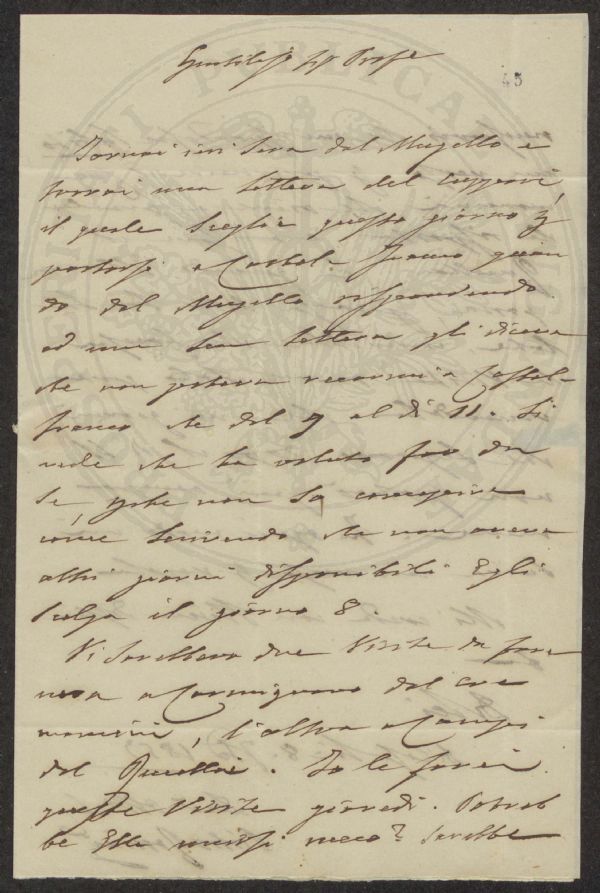 Gentilissº Sigr Profre
45
Tornai ieri sera dal Mugello e
trovai una lettera del
il quale sceglie questo giorno p
portarsi a Castel-Franco quan
do dal Mugello rispondendo
ad una sua lettera gli diceva
che non poteva recarmi a Castel-
franco che dal 9 al dì 11. Si
vede che ha voluto fare da
se, perche non so
come scrivendo che non aveva
altri giorni disponibili Egli
scelga il giorno 8.
Vi sarebbero due Visite da fare
una a Carmignano dal Cre
moncini, l'altra a Campi
dal Rucellai. Io le farei
queste Visite giovedì. Potreb
be Ella unirsi meco? Sarebbe